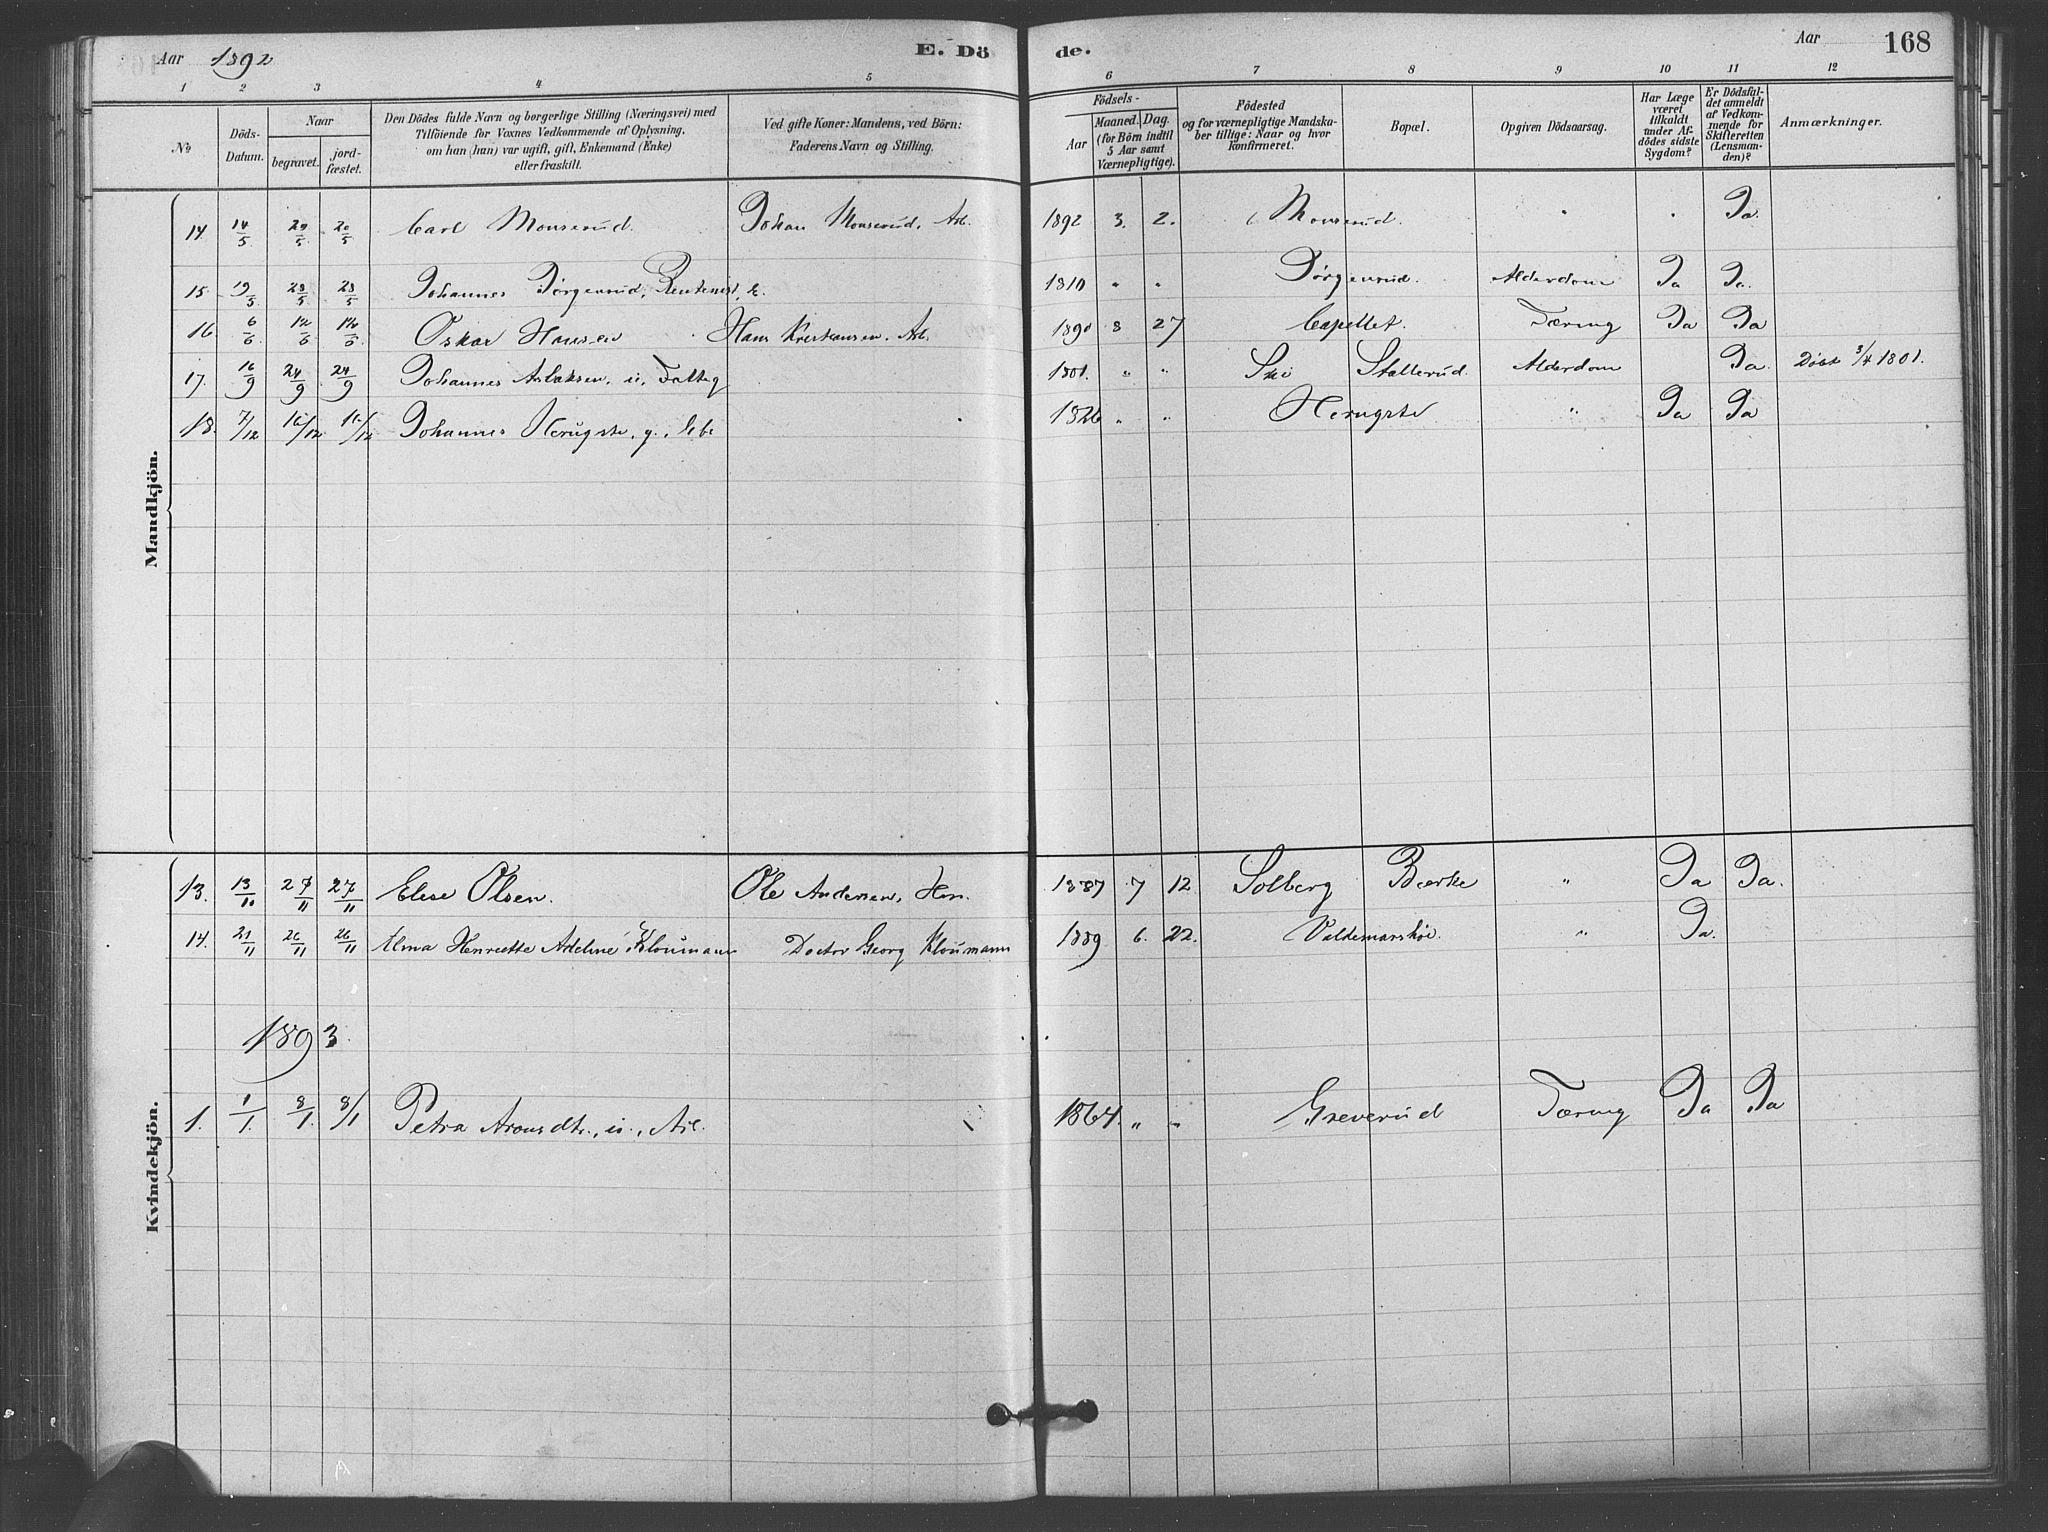 Aar 1892 E. Dö de. Aar 168
1 2 3 4 5 6 7 8 9 10 11 12
No
Döds-Datum.
Naar
begravet.
jord-fæstet.
Den Dödes fulde Navn og borgerlige Stilling (Næringsvei) med
Tilföiende for Voxnes Vedkommende af Oplysning,
om han (hun) var ugift, gift, Enkemand (Enke)
eller fraskilt.
Ved gifte Koner: Mandens, ved Börn:
Faderens Navn og Stilling.
Födsels-
Aar
Maaned. Dag.
(for Börn indtil
5 Aar samt
Værnepligtige).
Födested
og for værnepligtige Mandska-
ber tillige: Naar og hvor
konfirmeret.
Bopæl.
Opgiven Dödsaarsag.
Har Læge
været
tilkaldt
under Af-
dödes sidste
Sygdom?
Er Dödsfal-
det anmeldt
af Vedkom-
mende for
Skifteretten
(Lensman-
den)?
Anmærkninger.
Mandkjön.
14. 14/5 20/5 20/5 Carl Monserud. Johan Monserud, Arb. 1892 3. 2. Monserud. " " Ja.
15. 19/5 28/5 28/5 Johannes Jörgenrud, Rentenist, E. 1810 " " Jörgenrud. Alderdom Ja Ja.
16. 6/6 12/6 12/6 Oskar Hansen Hans Kristiansen. Arb. 1890 8 27 Capellet. Tæring Ja Ja
17. 16/9 24/9 24/9 Johannes Aslaksen, u, Fattig 1801. " " Ski Stallerud. Alderdom Ja. Döbt 3/4 1801.
18. 7/12 16/12 16/12 Johannes Haugste, g., 1826 " " Haugste " Ja Ja
Kvindekjön.
13. 13/11 27/11 27/11 Elise Olsen. Ole Andersen, 1887 7 12. Solberg Bærke " Ja Ja.
14. 21/11 26/11 26/11 Alma Henriette Adeline Kloumann Doctor Georg Kloumann 1889 6. 22. Valdemarshöi. " Ja.
1893.
1. 1/1. 8/1. 8/1 Petra Aronsdtr., u., Arb. 1864. " " Greverud Tæring Ja Ja